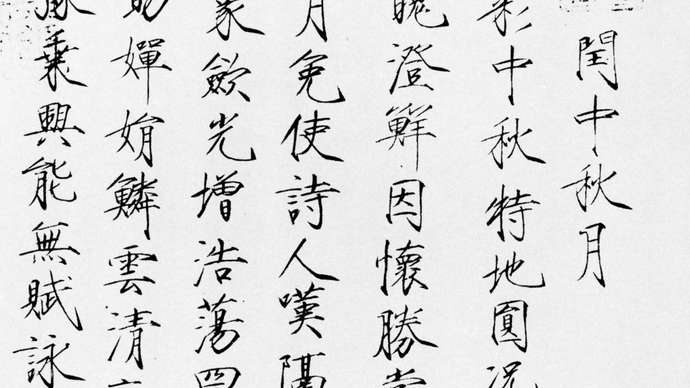 閏中秋月
彩中秋特地圓況
魄澄鮮因懷勝
月免使詩人嘆隔
象歛光增浩蕩四
助嬋娟鱗雲清
豫乘興能無賦詠